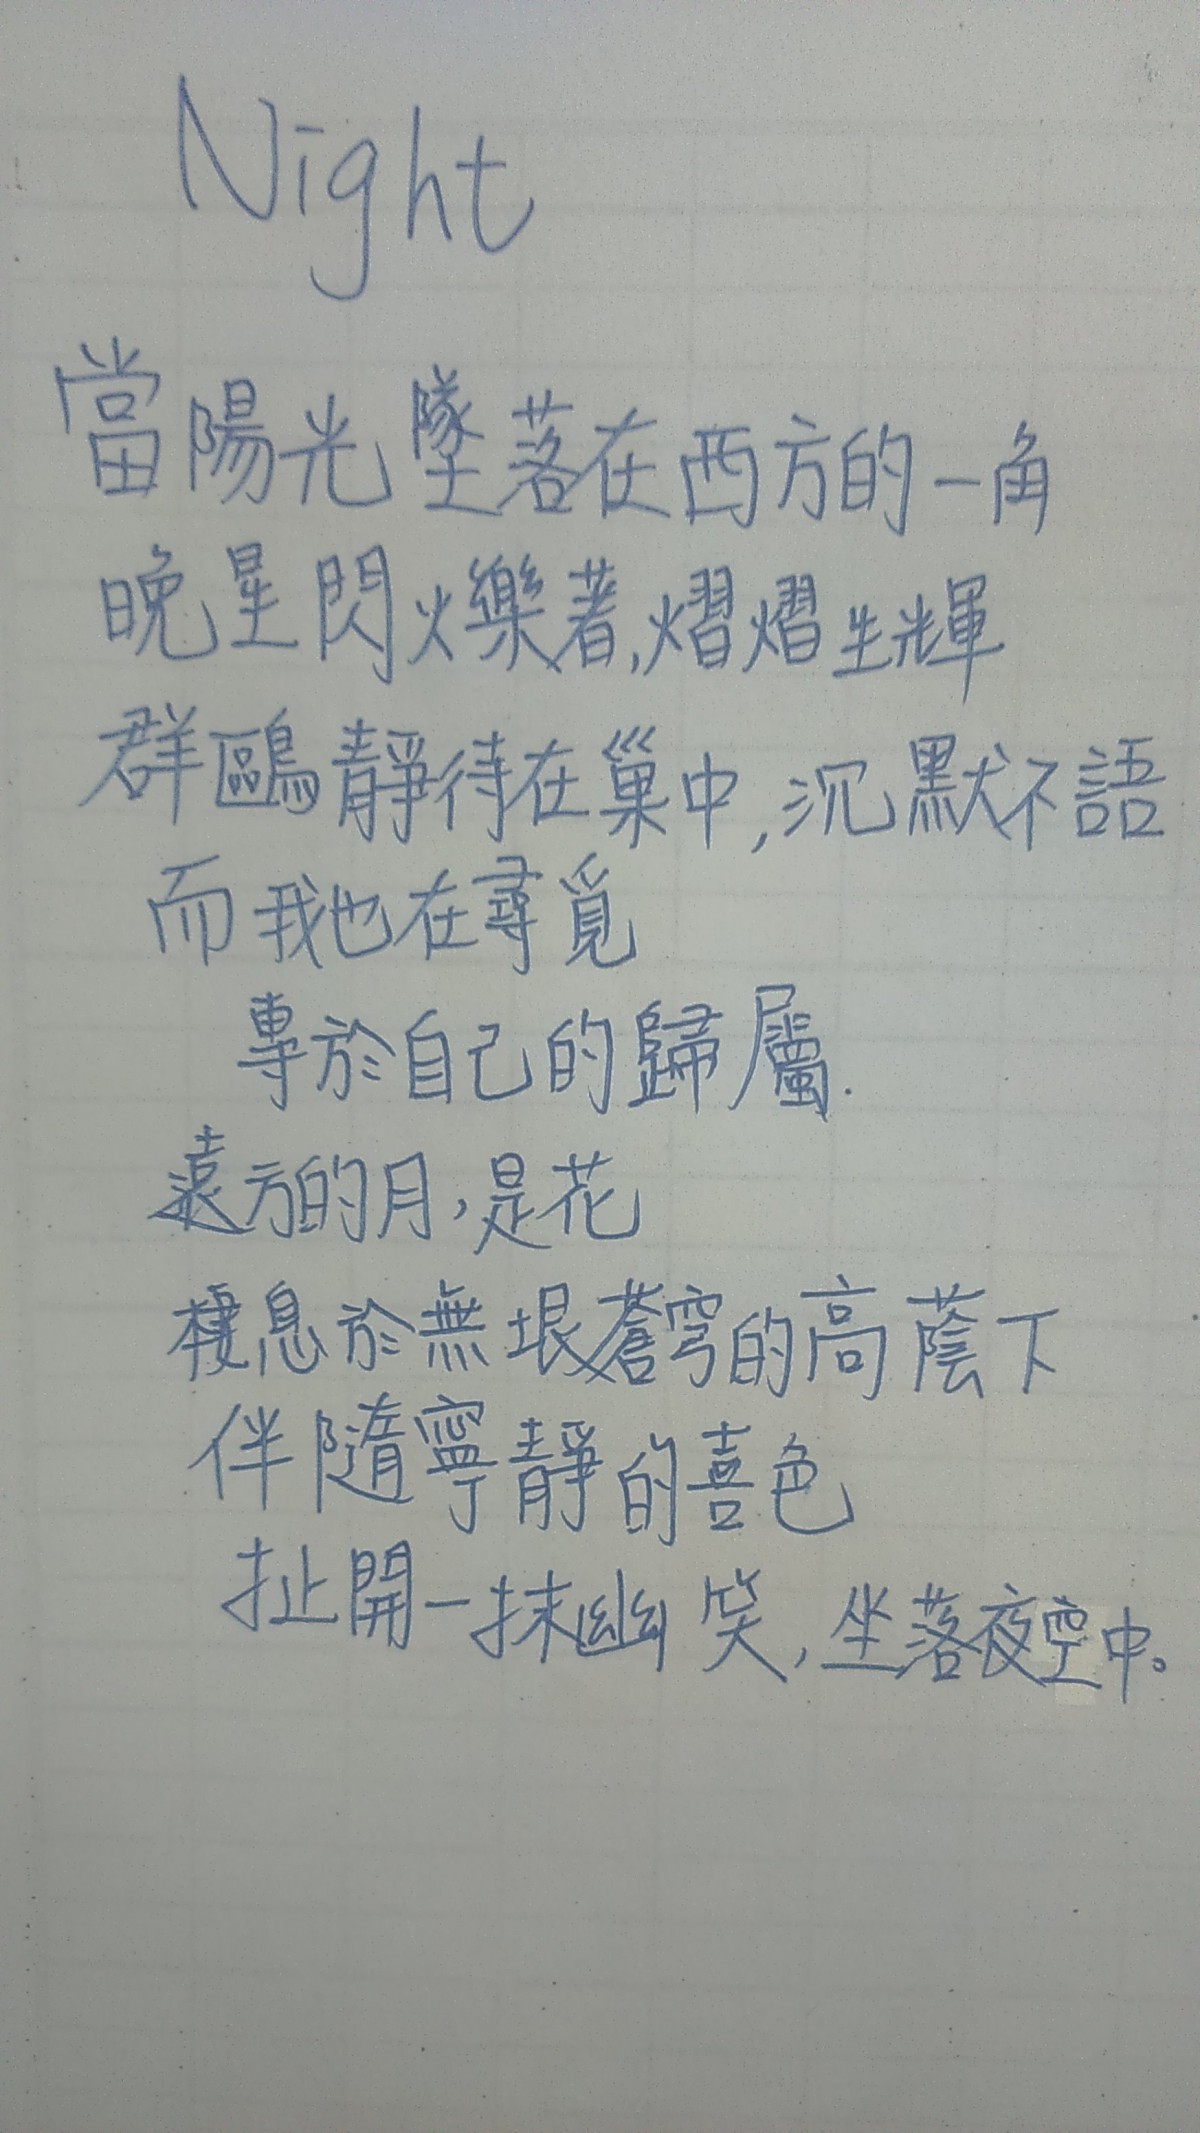 Night
當陽光墜落在西方的一角
晚星閃爍著,熠熠生輝
群鷗靜待在巢中,沉默不語
而我也在尋覓
專於自己的歸屬.
遠方的月,是花
棲息於無垠蒼穹的高蔭下
伴隨寧靜的喜色
扯開一抹幽笑,坐落夜空中。